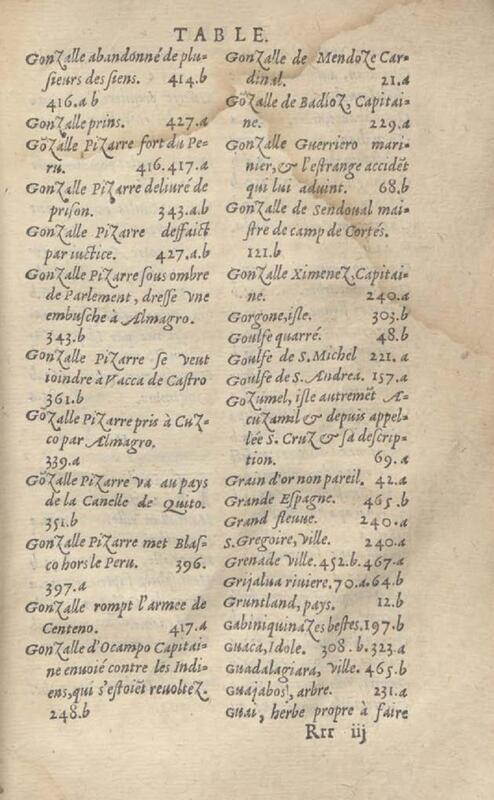 TABLE.
Gonzalle abandonné de plu-
sieurs des siens. 414.b
416.a b
Gonzalle prins. 427.a
Gõzalle Pizarre fort du Pe-
ru. 416.417.a
Gonzalle Pizarre deliuré de
prison. 343.a.b
Gonzalle Pizarre deffaict
par iuctice. 427.a.b
Gonzalle Pizarre sous ombre
de Parlement, dresse vne
embusche à Almagro.
343.b
Gonzalle Pizarre se veut
ioindre à Vacca de Castro
361.b
Gõzalle Pizarre pris à Cuz-
co par Almagro.
339.a
Gõzalle Pizarre va au pays
de la Canelle de Quito.
351.b
Gonzalle Pizarre met Blas-
co hors le Peru. 396.
397.a
Gonzalle rompt l'armee de
Centeno. 417.a
Gonzalle d'Ocampo Capitai-
ne enuoié contre les Indi-
ens, qui s'estoiẽt reuoltez.
248.b
Gonzalle de Mendoze Car-
dinal. 21.a
Gõzalle de Badioz, Capitai-
ne. 229.a
Gonzalle Guerriero mari-
nier, & l'estrange accidẽt
qui lui aduint. 68.b
Gonzalle de Sendoual mai-
stre de camp de Cortés.
121.b
Gonzalle Ximenez, Capitai-
ne. 240.a
Gorgone, isle. 303.b
Goulfe quarré. 48.b
Goulfe de S. Michel 221.a
Goulfe de S. Andrea. 157.a
Gozumel, isle autremẽt A-
cuzamil & depuis appel-
lée S. Cruz & sa descrip-
tion. 69.a
Grain d'or non pareil. 42.a
Grande Espagne. 465.b
Grand fleuue. 240.a
S. Gregoire, ville. 240.a
Grenade ville. 452.b. 467.a
Grijalua riuiere. 70.a. 64.b
Gruntland, pays. 12.b
Gabiniquinazes bestes. 197.b
Guaca, Idole. 308.b. 323.a
Guadalagiara, ville. 465.b
Guajabos, arbre. 231.a
Guai, herbe propre à faire
Rrr iij